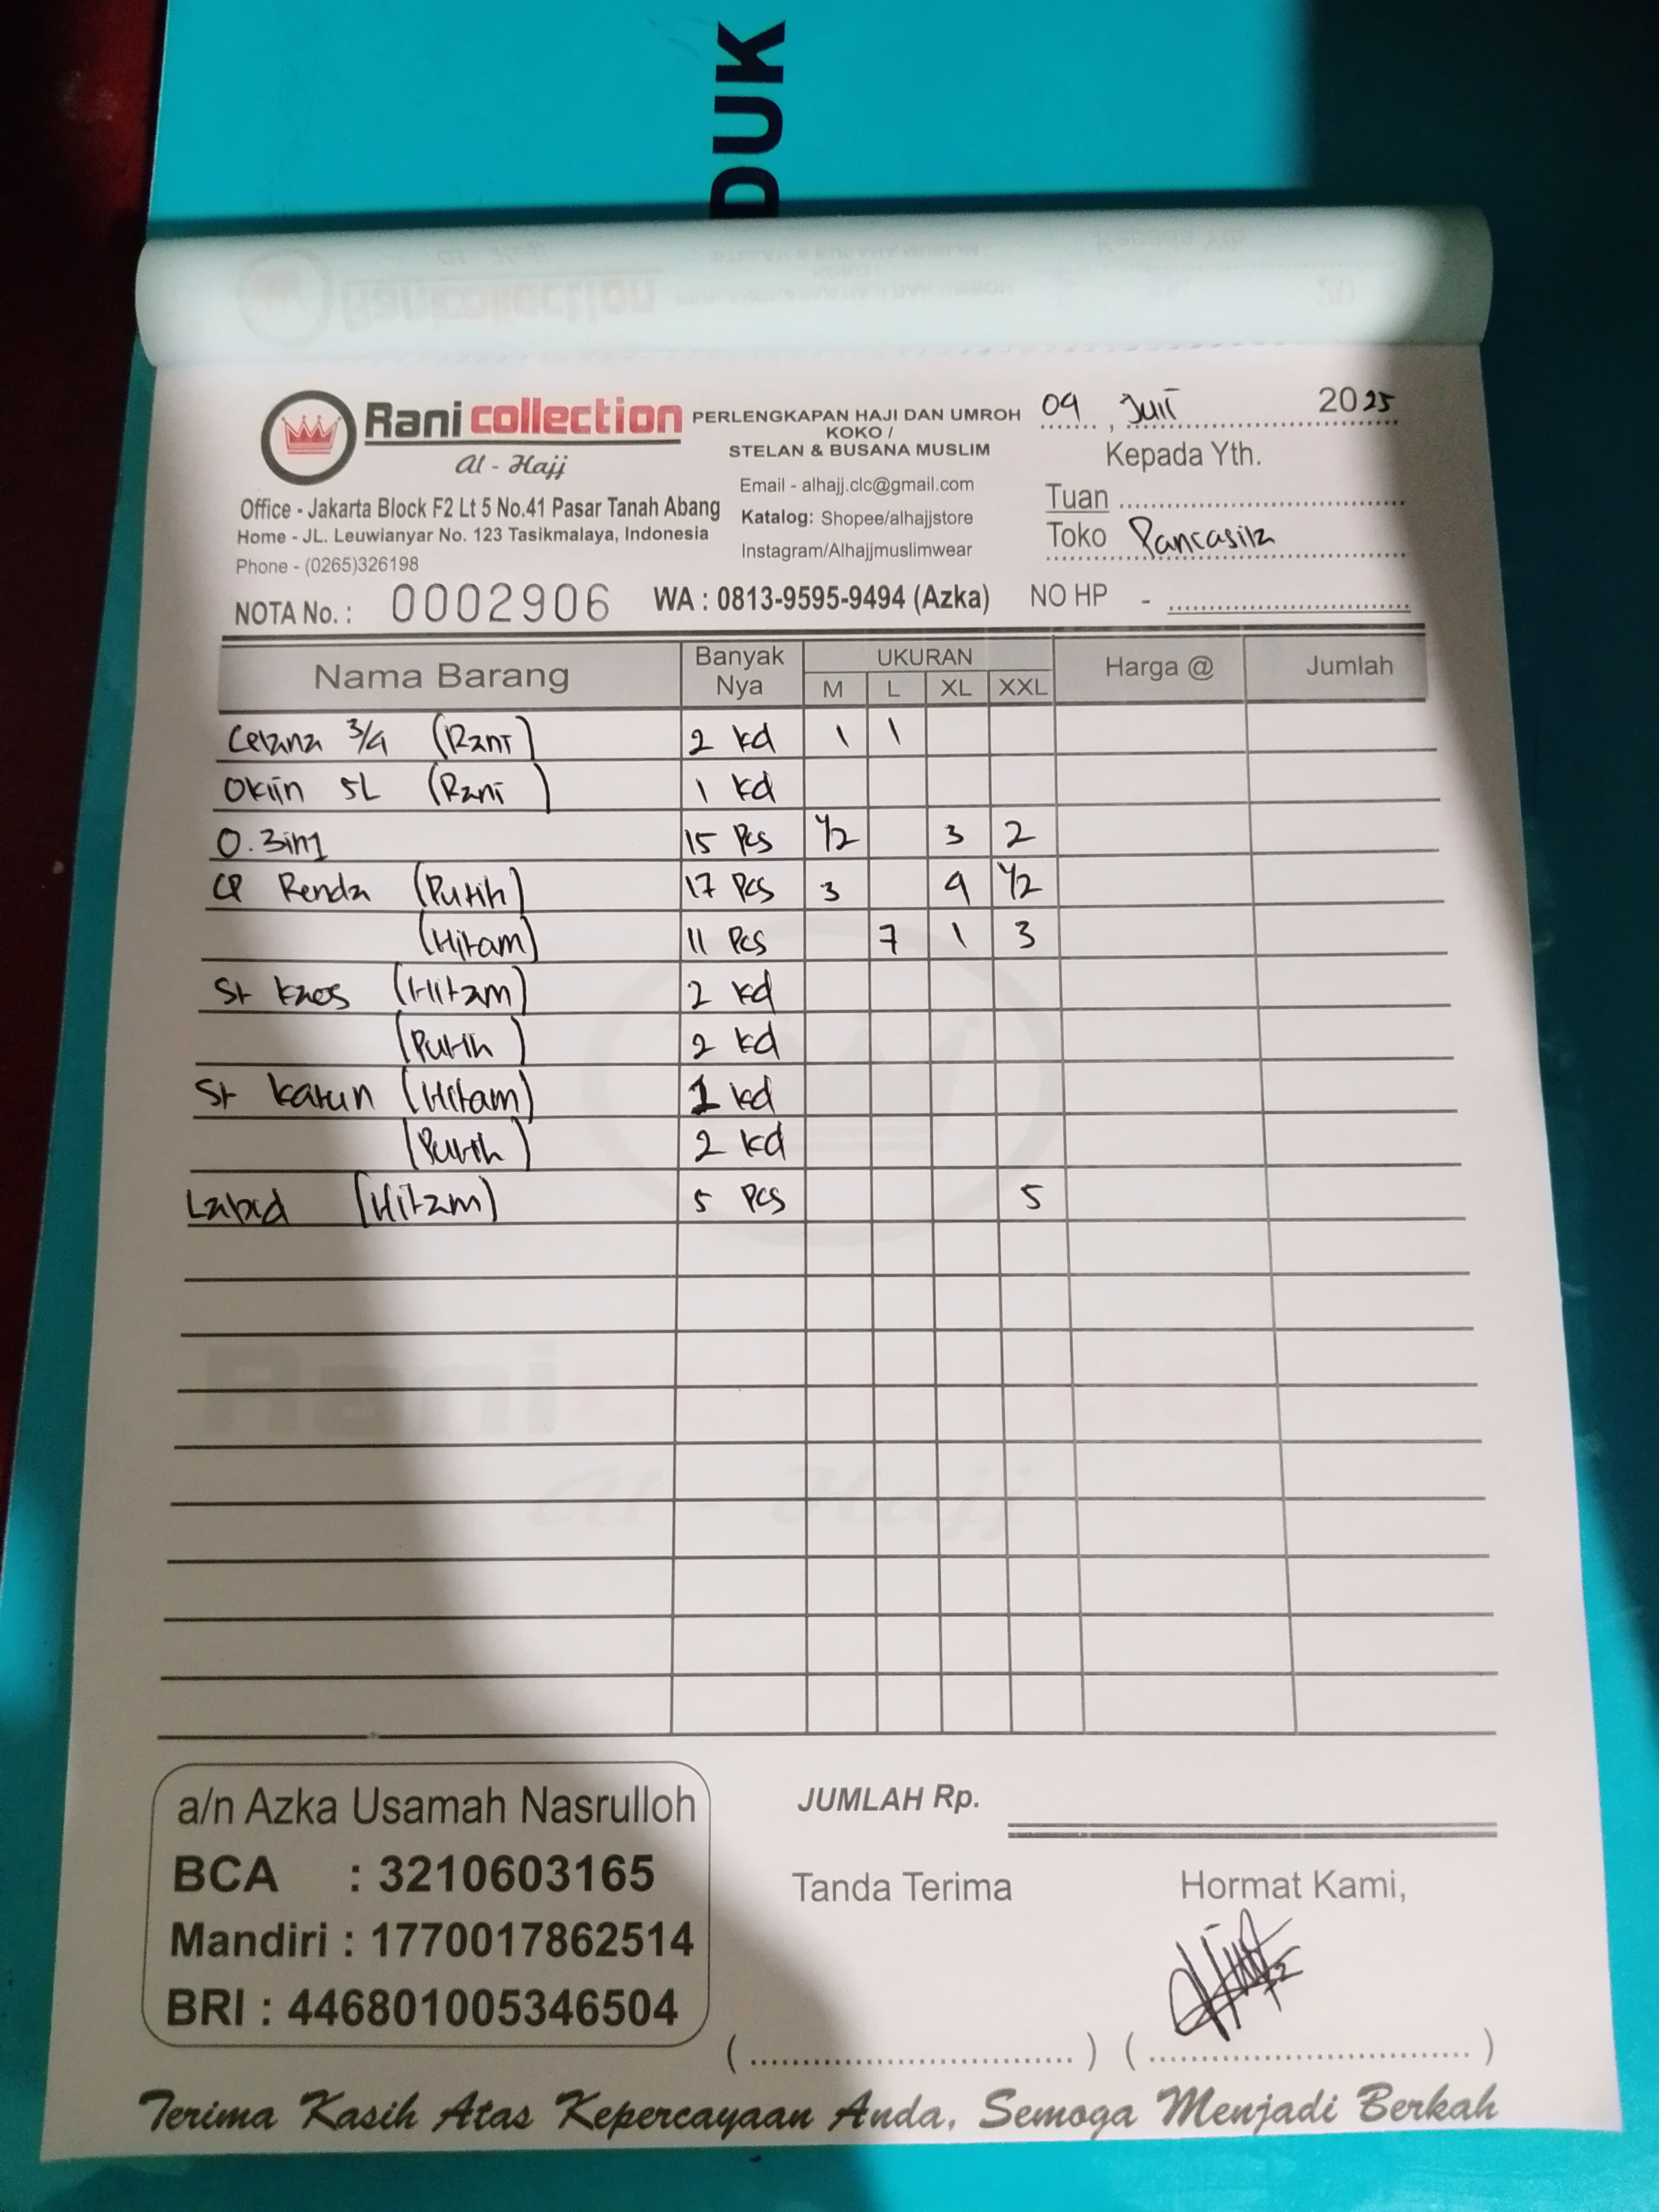 DUK
Rani collection
Al - Hajj
PERLENGKAPAN HAJI DAN UMROH
KOKO /
STELAN & BUSANA MUSLIM
09, Juli 2025
Kepada Yth.
Office - Jakarta Block F2 Lt 5 No.41 Pasar Tanah Abang
Home - JL. Leuwianyar No. 123 Tasikmalaya, Indonesia
Phone - (0265)326198
Email - alhajj.clc@gmail.com
Katalog: Shopee/alhajjstore
Instagram/Alhajjmuslimwear
Tuan
Toko Pancasila
NOTA No. : 0002906 WA : 0813-9595-9494 (Azka) NO HP -
Nama Barang Banyak Nya UKURAN M L XL XXL Harga @ Jumlah
Celana 3/4 (Rani) 2 kd 1 1
Okiin 5L (Rani) 1 kd
O. 3in1 15 Pcs 1/2 3 2
CP Renda (Putih) 17 Pcs 3 4 1/2
(Hitam) 11 Pcs 7 1 3
St kaos (Hitam) 2 kd
(Putih) 2 kd
St katun (Hitam) 1 kd
(Putih) 2 kd
(Hitam) 5 Pcs 5
Rani collectio
Al - Hajj
a/n Azka Usamah Nasrulloh
BCA : 3210603165
Mandiri : 1770017862514
BRI : 446801005346504
JUMLAH Rp.
Tanda Terima Hormat Kami,
(..............................) (..............................)
Terima Kasih Atas Kepercayaan Anda, Semoga Menjadi Berkah